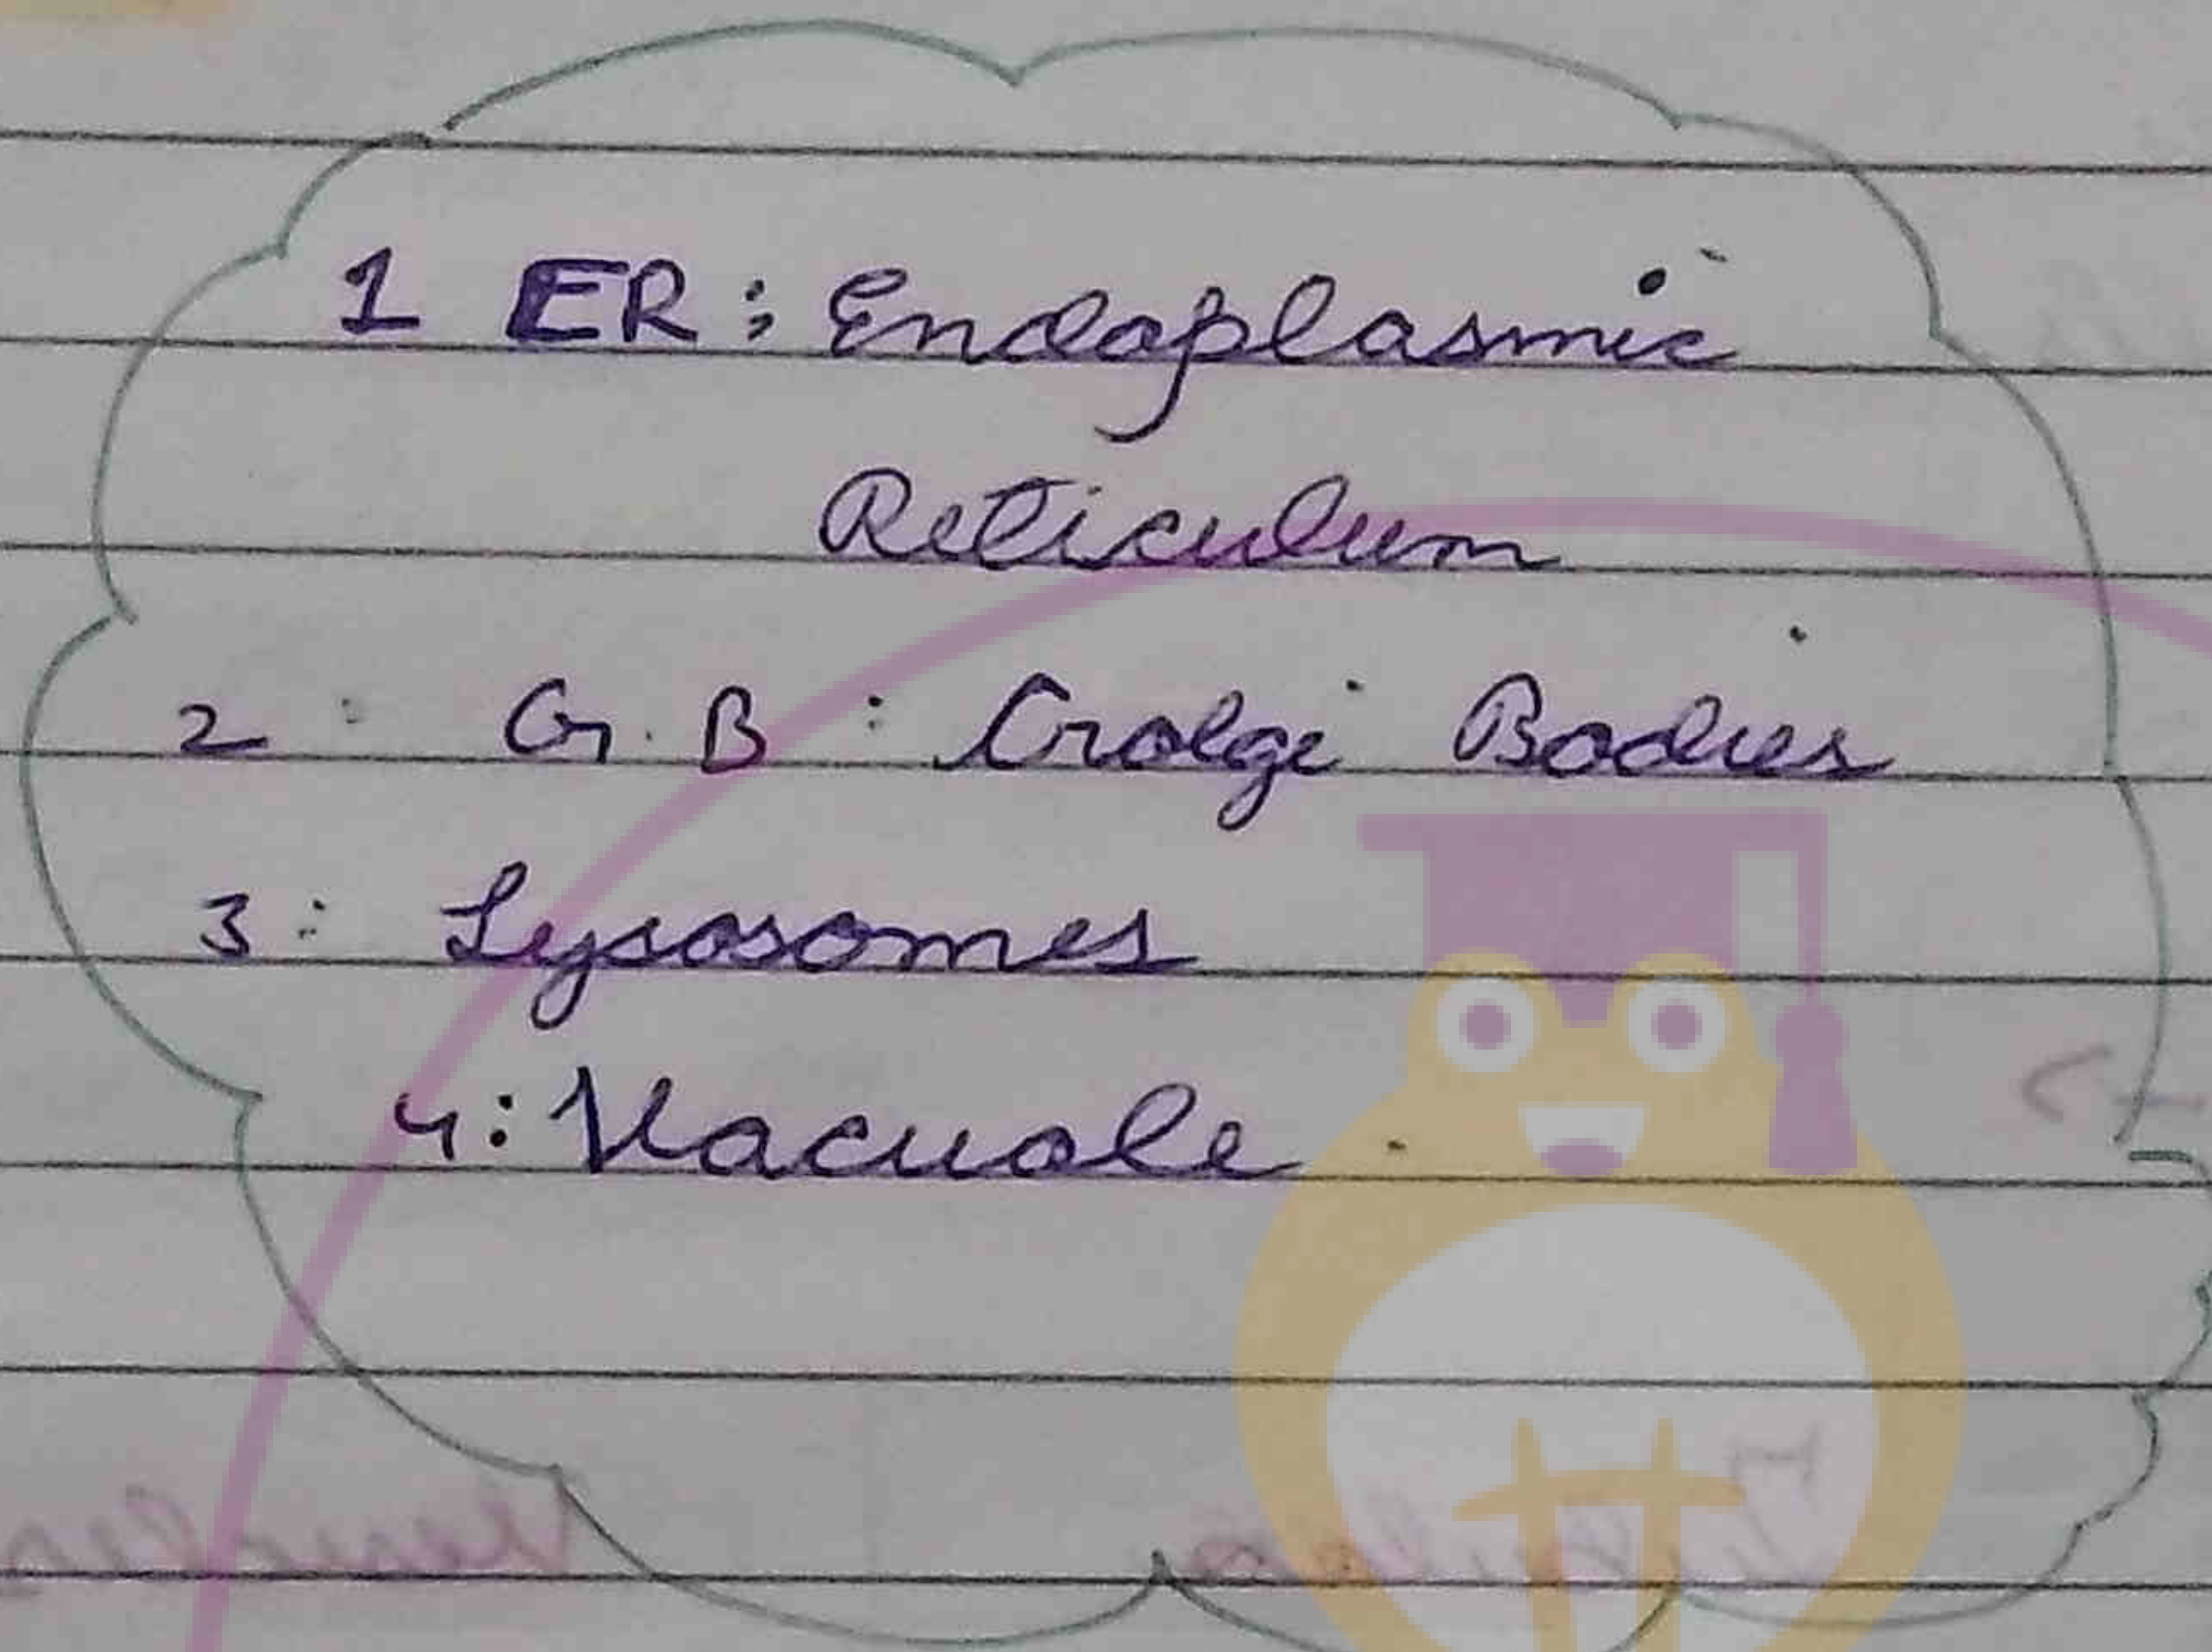 1 ER : Endoplasmic
Reticulum
2 : G. B : Golgi Bodies
3 : Lysosomes
4 : Vacuole .